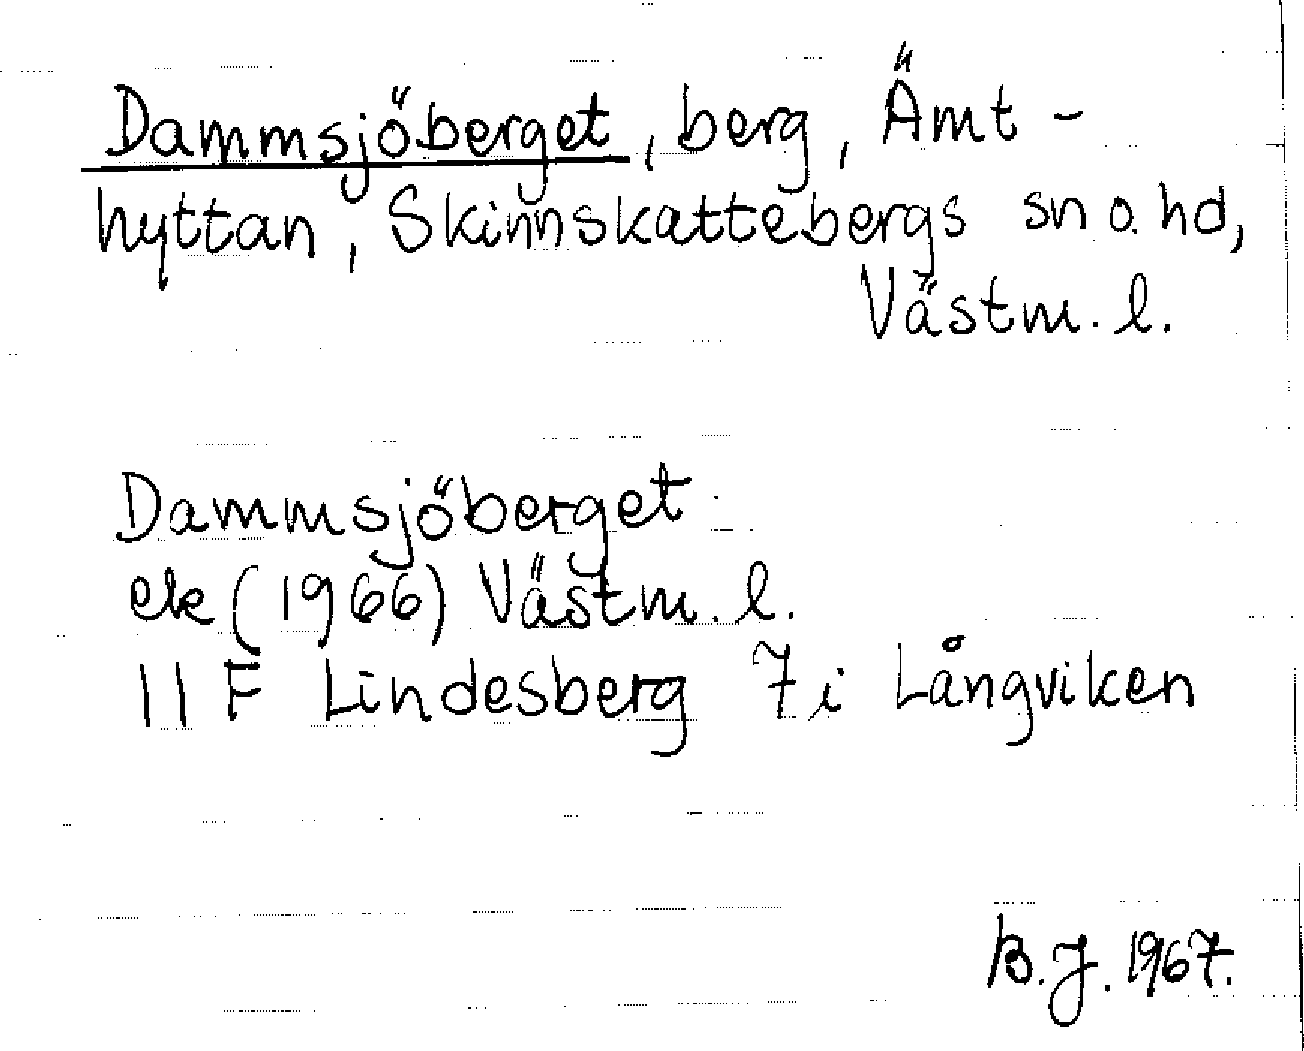 Dammsjöberget, berg, Ämt-
hyttan, Skinnskattebergs sn o. hd,
Västm. l.
Dammsjöberget
ek (1966) Västm. l.
11 F Lindesberg 7i Långviken
B.J. 1967.